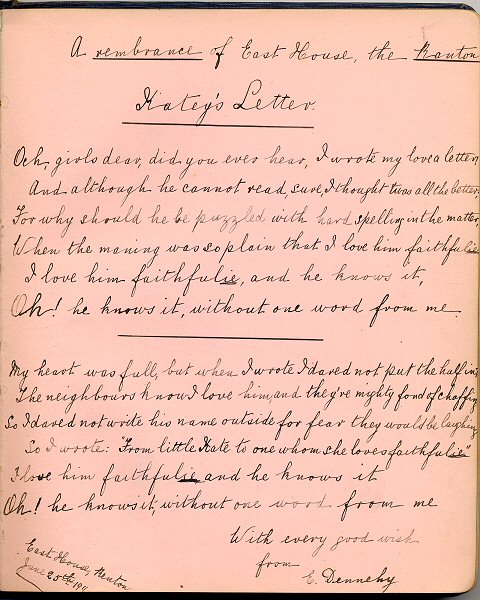 A rembrance of East House, the Kanton
Katey's Letter.
Och, girls dear, did you ever hear, I wrote my love a letter,
And although he cannot read, sure, I thought twas all the better.
For why should he be puzzled with hard spelling in the matter,
When the maning was so plain that I love him faithfulie
I love him faithfulie, and he knows it,
Oh! he knows it, without one word from me.
My heart was full, but when I wrote I dared not put the half in;
The neighbours know I love him, and they're mighty fond of chaffing
So I dared not write his name outside for fear they would be laughing
So I wrote: "From little Kate to one whom she loves faithfulie"
I love him faithfulie and he knows it
Oh! he knows it, without one word from me
With every good wish
from
E. Dennehy
East House, Kenton
June 25th